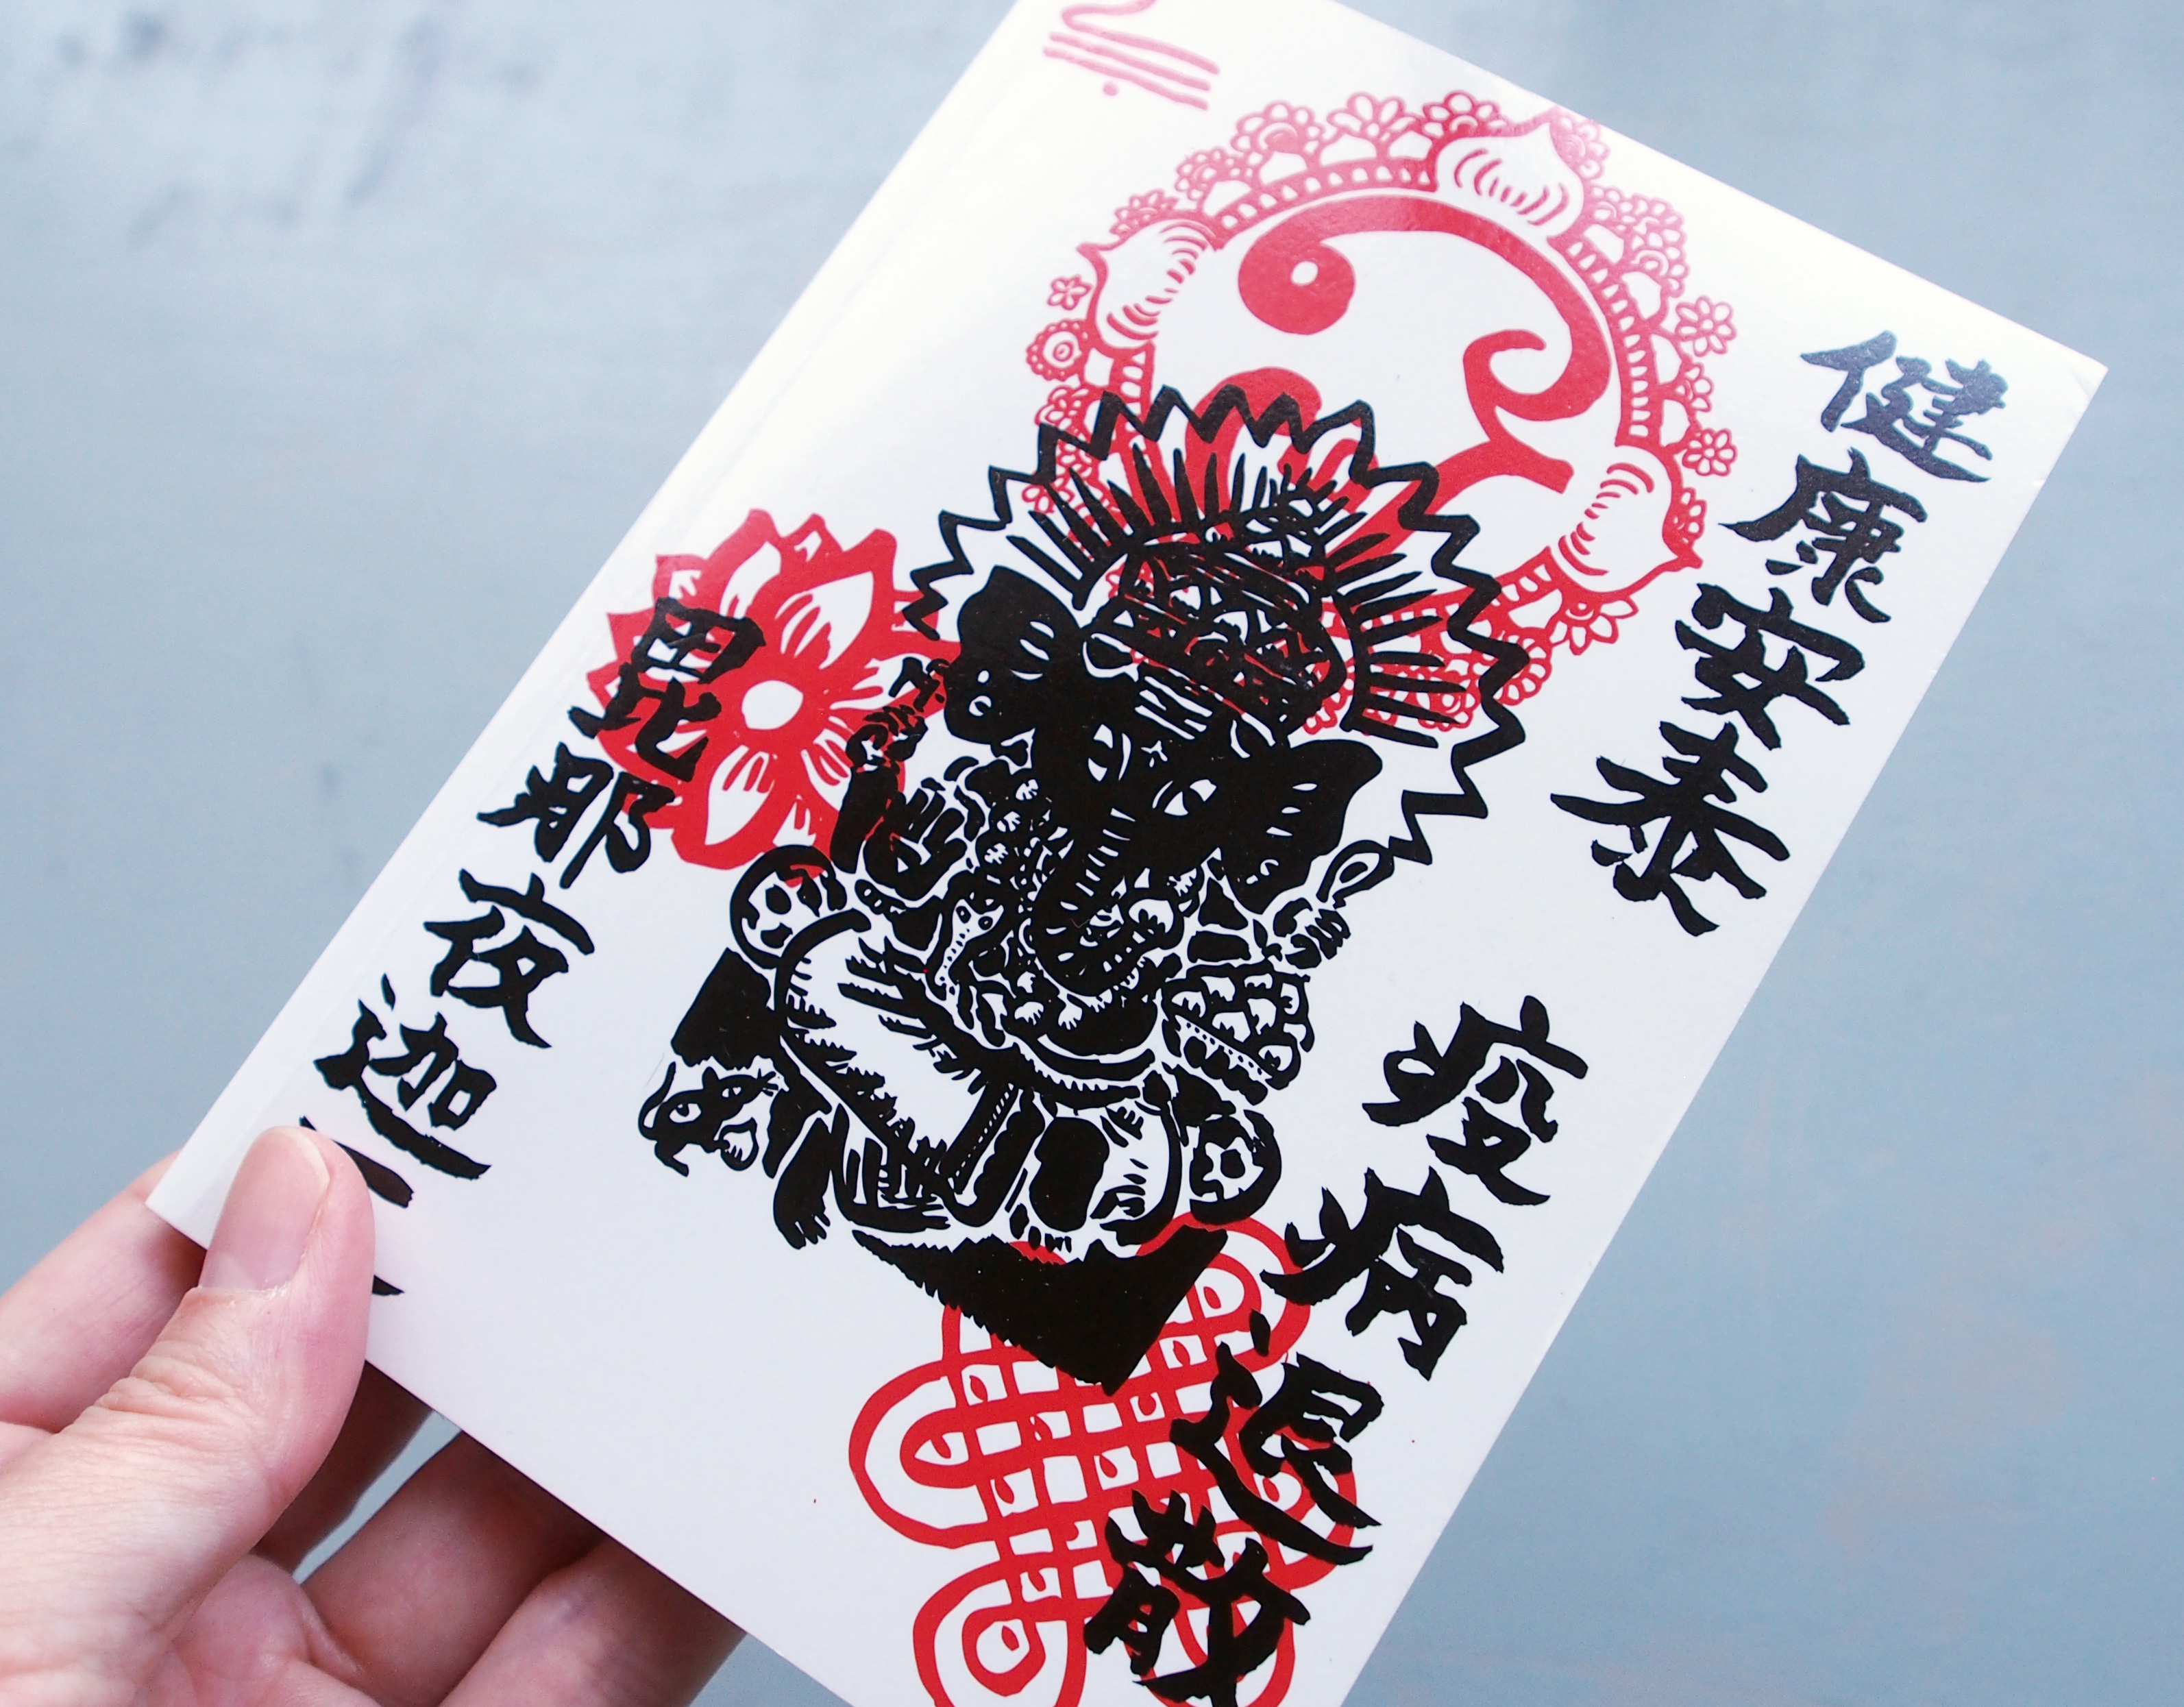 健康安泰
疫病退散
毘那夜迦